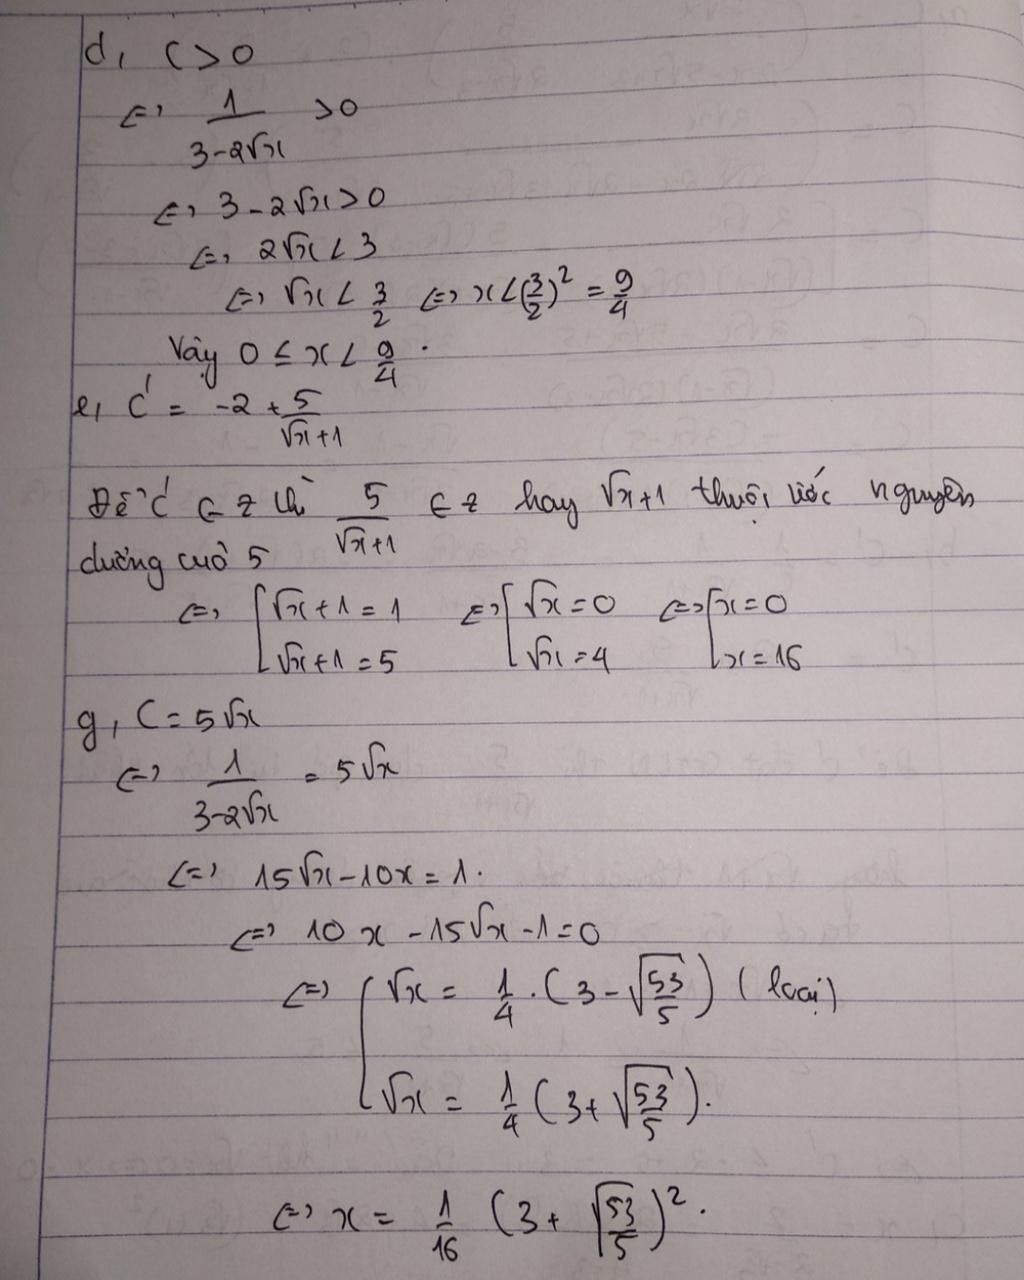 d, C > 0
<=> 1/(3-2√x) > 0
<=> 3 - 2√x > 0
<=> 2√x < 3
<=> √x < 3/2 <=> x < (3/2)² = 9/4
Vậy 0 ≤ x < 9/4.
e, C' = -2 + 5/(√x+1)
Để C' ∈ Z thì 5/(√x+1) ∈ Z hay √x+1 thuộc ước nguyên
dương của 5
<=> [√x+1 = 1 <=> [√x = 0 <=> [x = 0
[√x+1 = 5 [√x = 4 [x = 16
g, C = 5√x
<=> 1/(3-2√x) = 5√x
<=> 15√x - 10x = 1.
<=> 10x - 15√x - 1 = 0
<=> [√x = 1/4 . (3 - √(53/5)) (loại)
[√x = 1/4 (3 + √(53/5)).
<=> x = 1/16 (3 + √(53/5))².